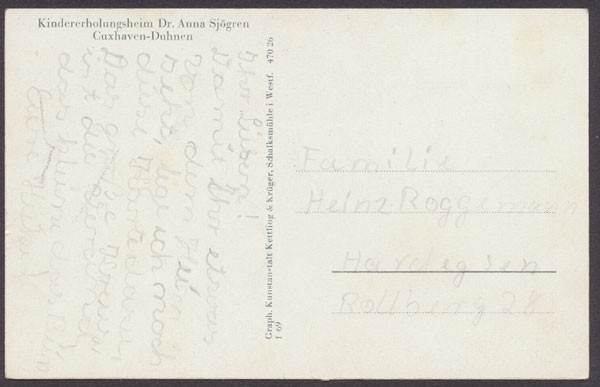 Kindererholungsheim Dr. Anna Sjögren
Cuxhaven-Duhnen
Ihr Lieben!
Damit Ihr etwas
von dem Heim
seht, lege ich noch
diese
Das große
ist die
das kleine das
Eure
Graph. Kunstanstalt Kettling & Krüger, Schalksmühle i Westf. 470 26
1 69
Familie
Heinz Roggemann
Hardegsen
Rollberg 28